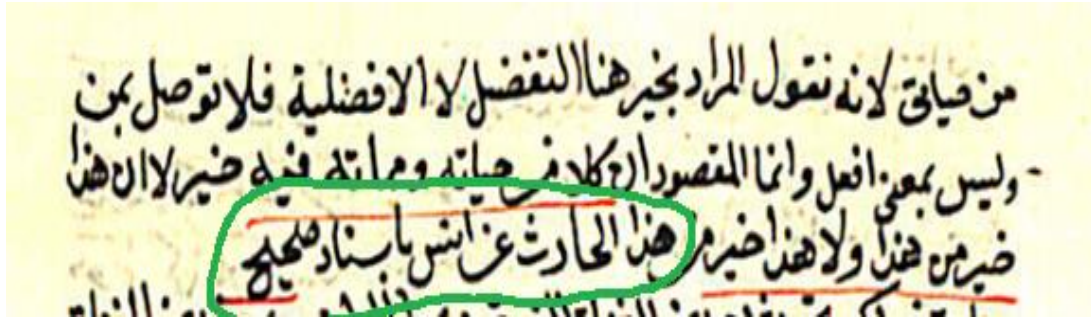 من حياتى لانه نقول المراد بخير هنا التفضل لا الافضلية فلا توصل بمن
وليس بمعنى افعل وانما المقصود ان كلا من حياته ومماته فيه خير لا ان هذا
خير من هذا ولا هذا خير من هذا الحارث عن انس باسناد صحيح